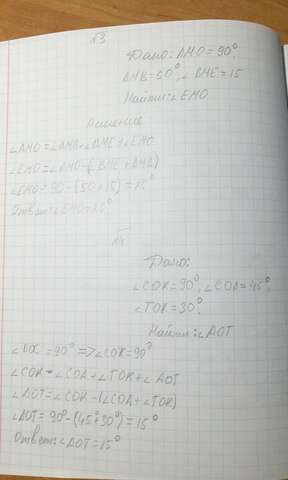 №3
Дано: AMO = 90°.
AMB = 50°, ∠BME = 15
Найти: ∠EMO
Решение
∠AMO = ∠AMB + ∠BME + ∠EMO
∠EMO = ∠AMO - (∠BME + AMB)
∠EMO = 90 - (50 + 15) = 25°
Ответ: ∠EMO = 25°
Дано:
∠COK = 90°, ∠COA = 45°,
∠TOK = 30°.
Найти: ∠AOT
= 90° => ∠COK = 90°
∠COK = ∠COA + ∠TOK + ∠AOT
∠AOT = ∠COK - (∠COA + ∠TOK)
∠AOT = 90° - (45° + 30°) = 15°
Ответ: ∠AOT = 15°